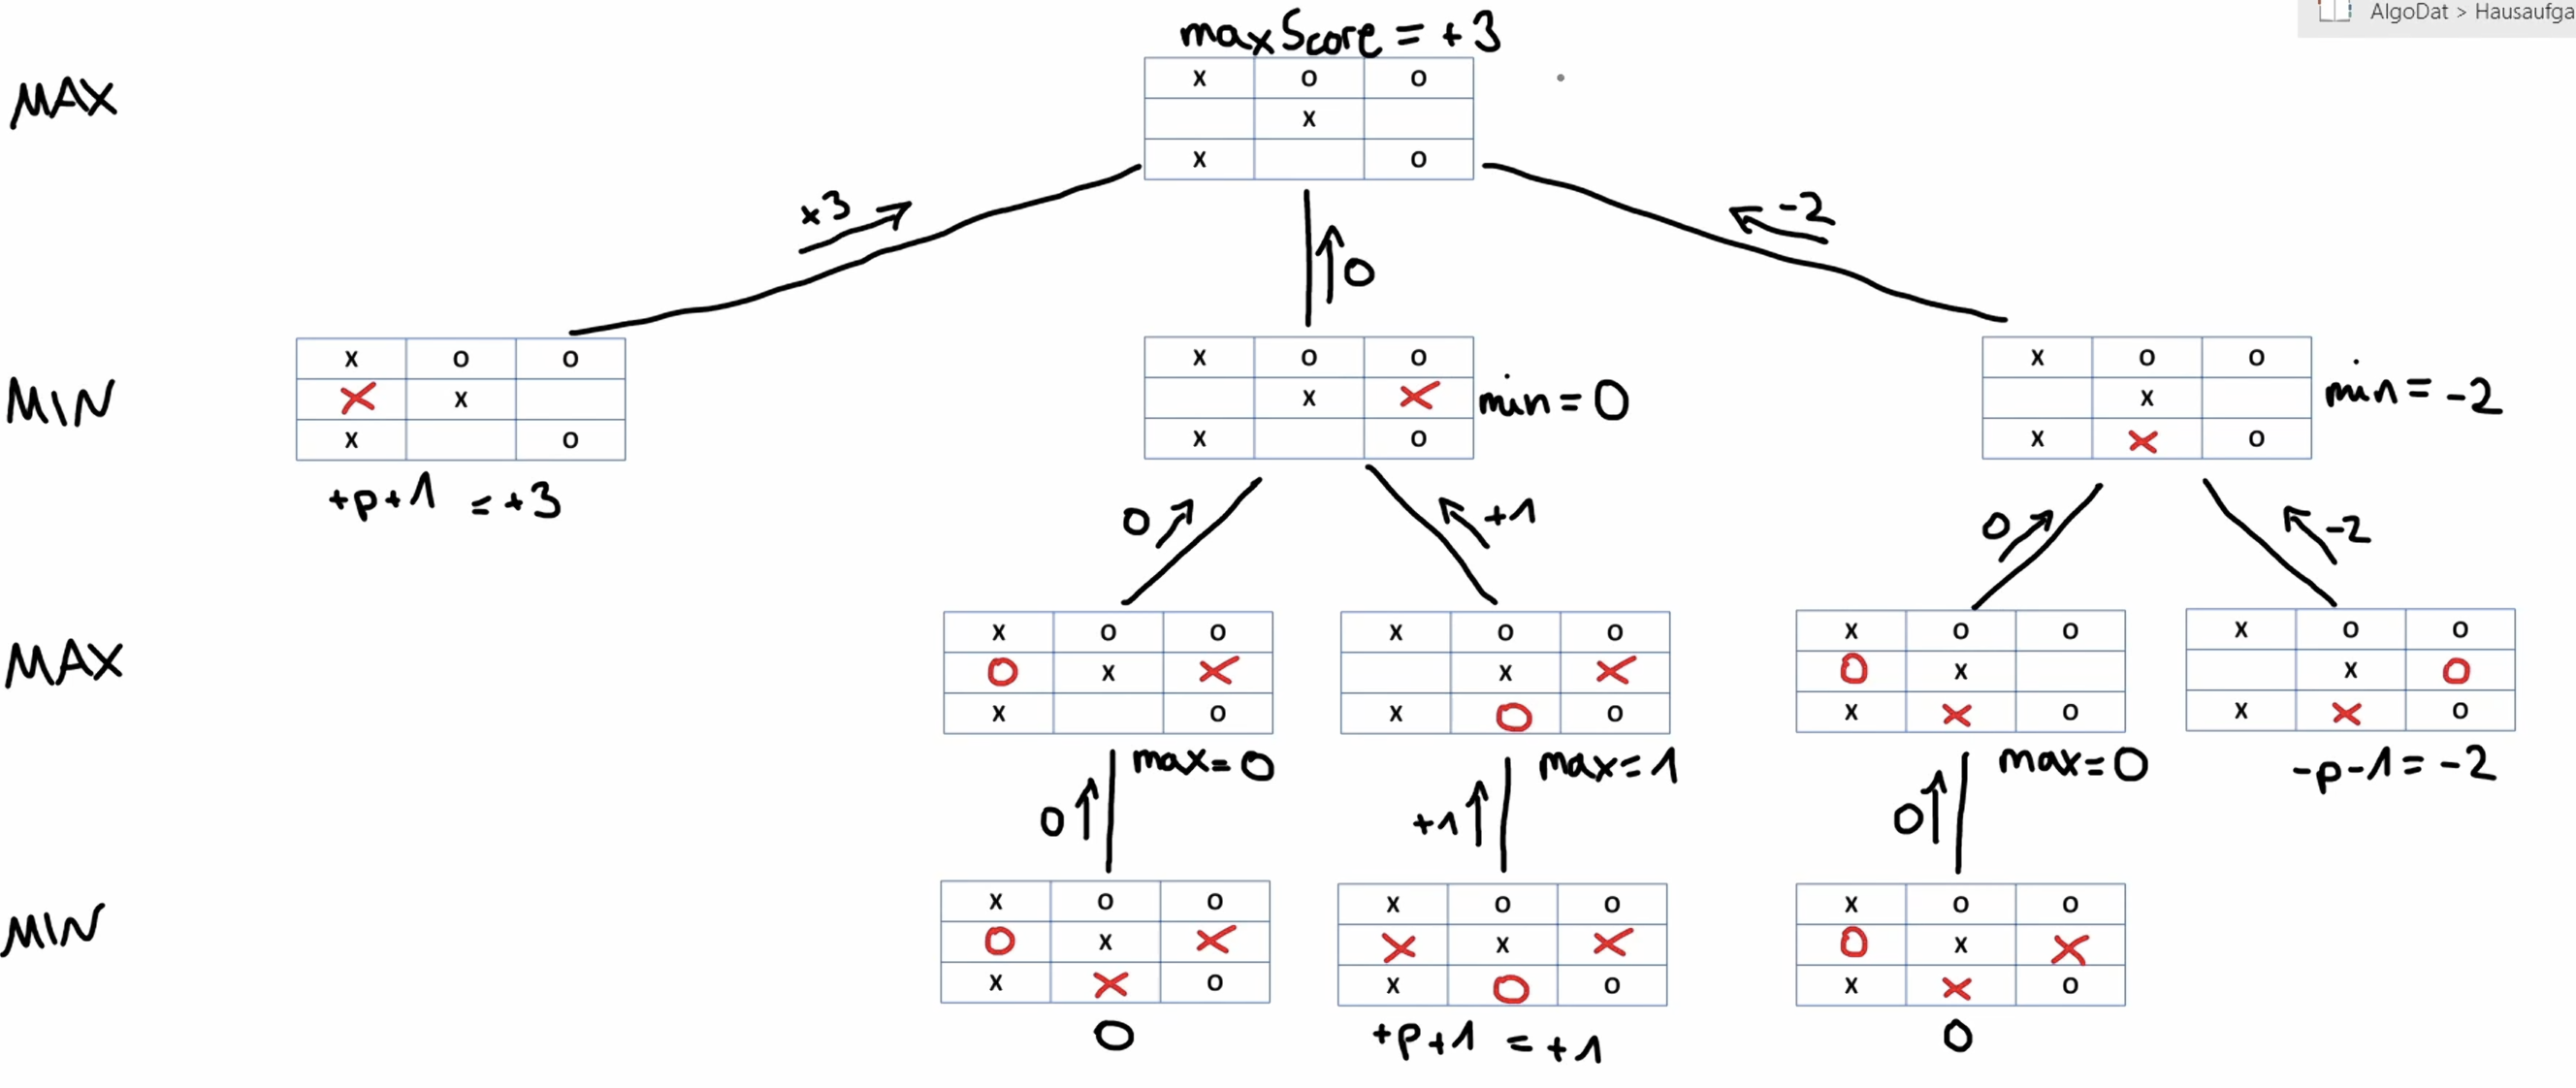 AlgoDat > Hausaufga
maxScore = +3
MAX
X O O
X
X O
+3
-2
0
MIN
X O O
X X
X O
+p+1 = +3
X O O
X X
X O
min = 0
X O O
X
X X O
min = -2
0
+1
0
-2
MAX
X O O
O X X
X O
max = 0
X O O
X X
X O O
max = 1
X O O
O X
X X O
max = 0
X O O
X O
X X O
-p-1 = -2
0
+1
0
MIN
X O O
O X X
X X O
0
X O O
X X X
X O O
+p+1 = +1
X O O
O X X
X X O
0